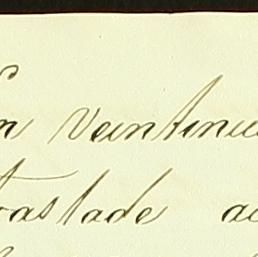 En veintinue
traslade a